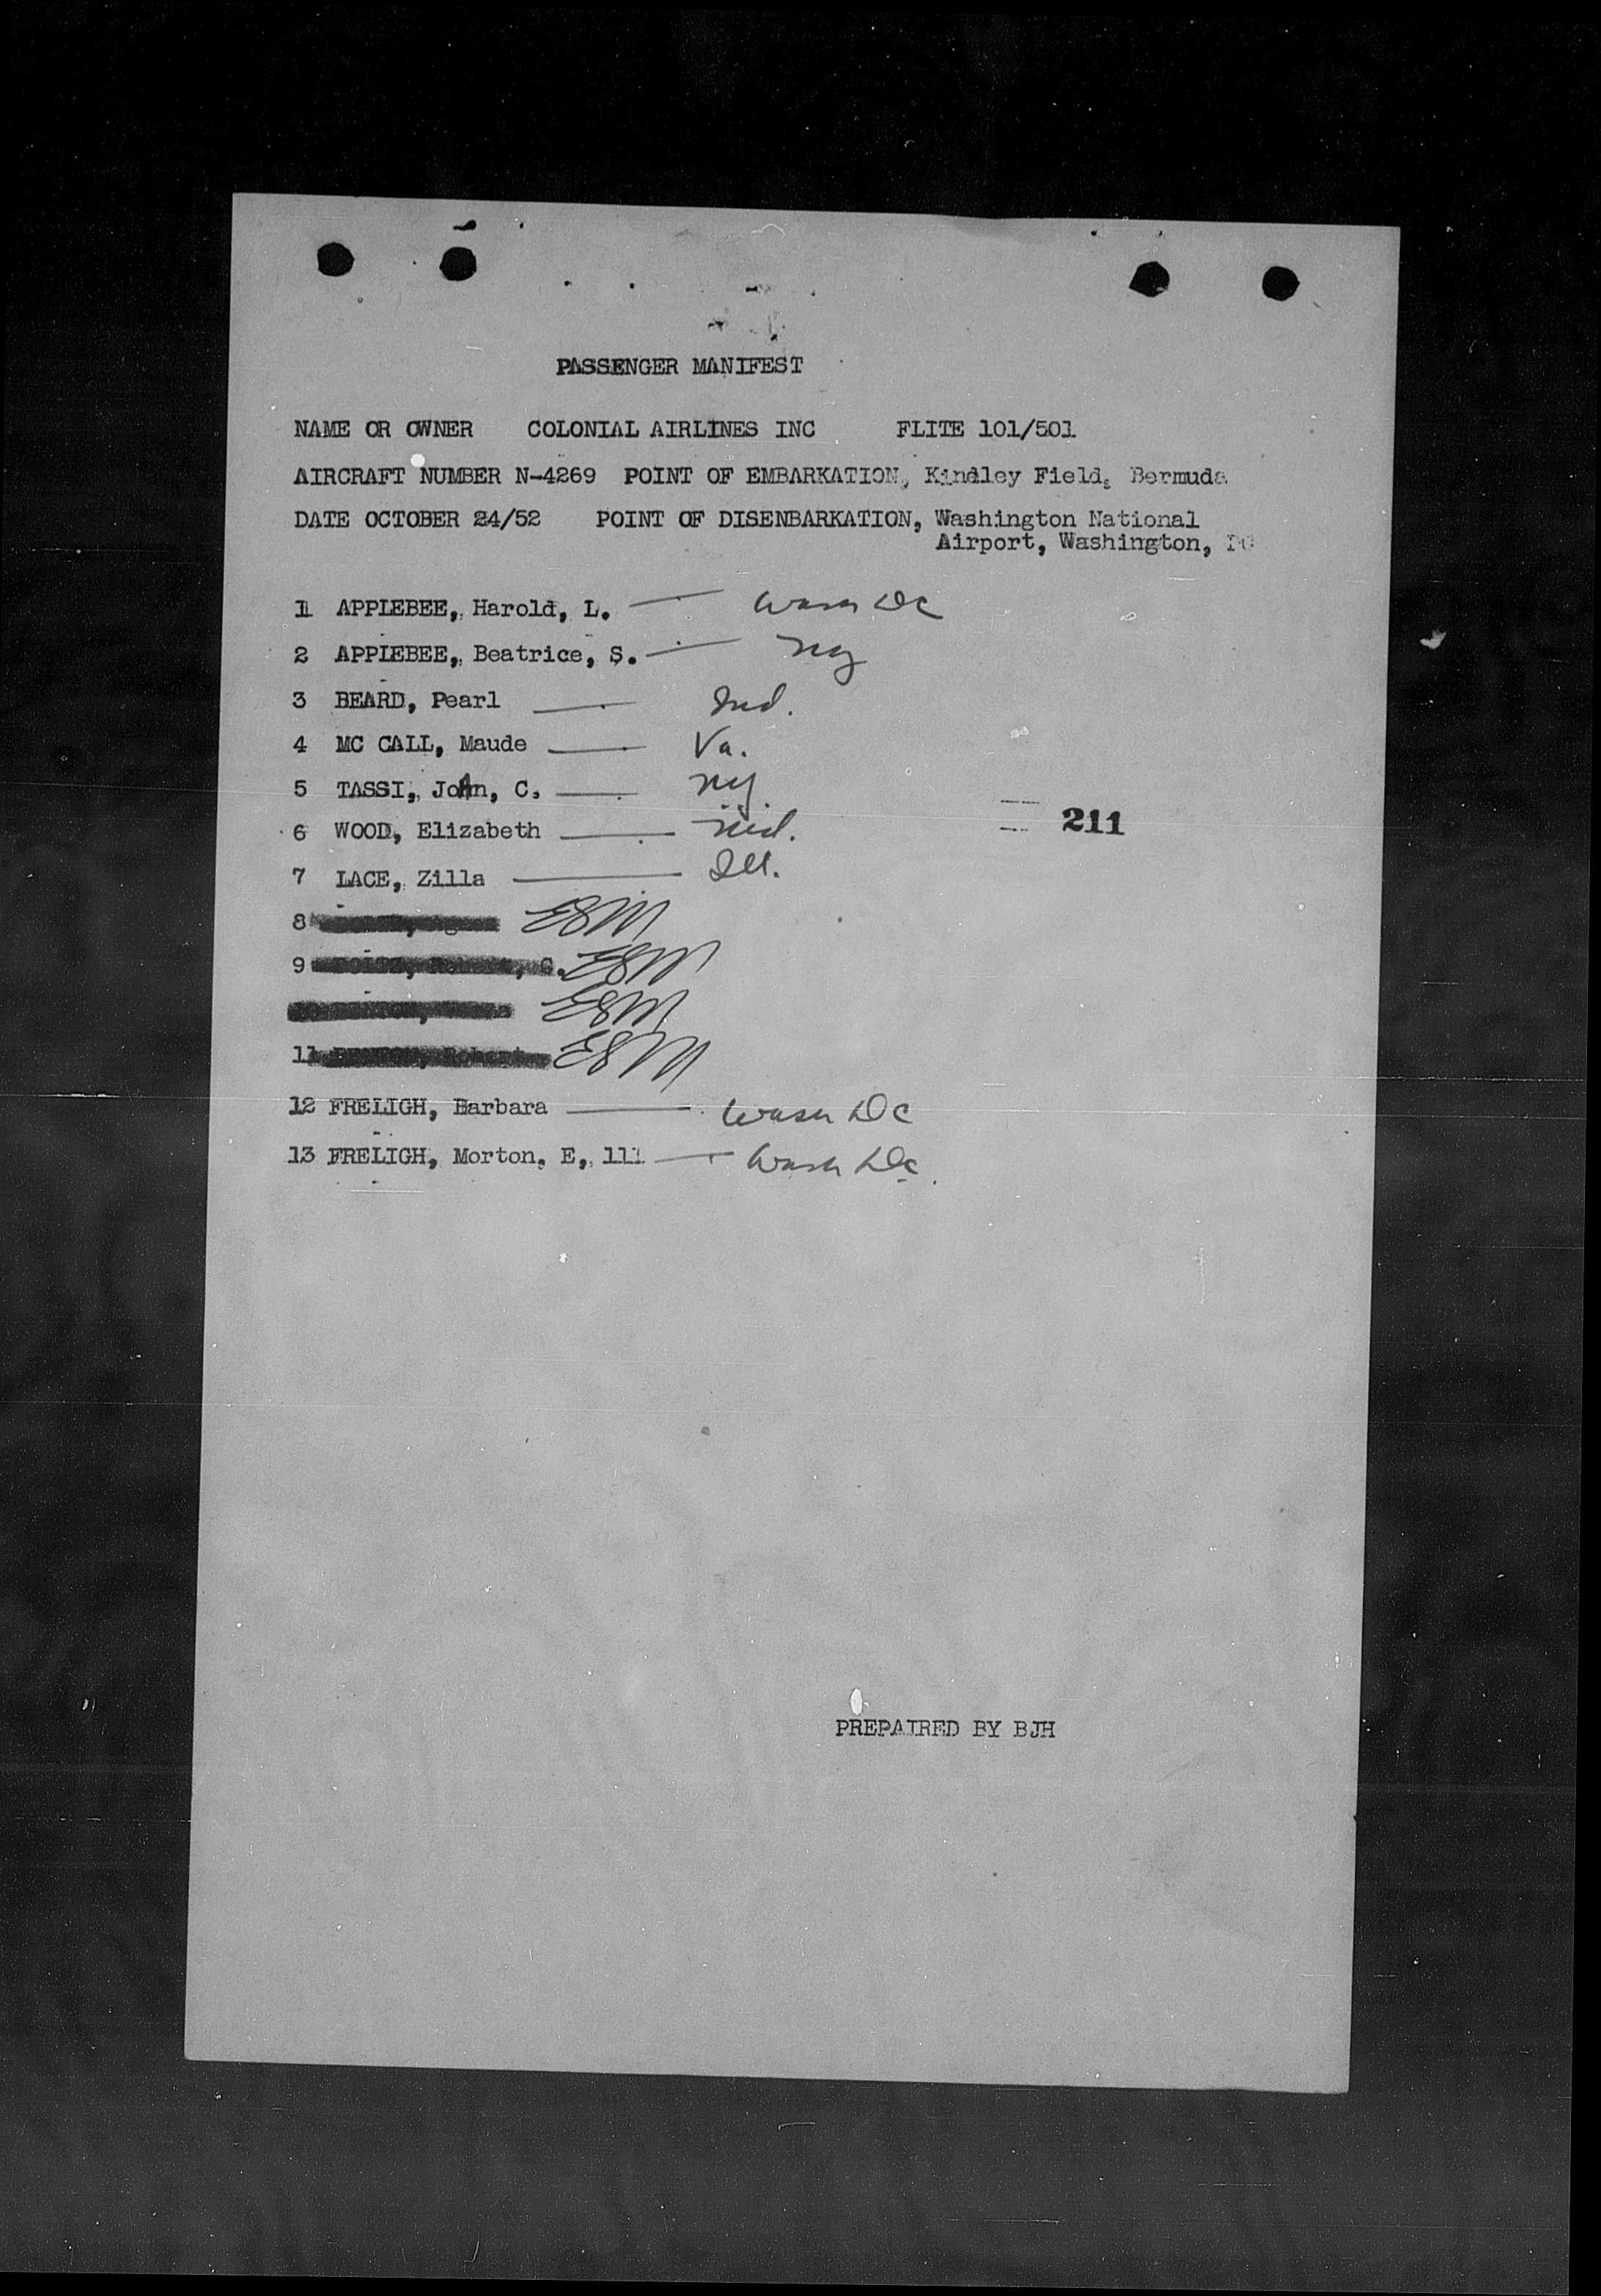 PASSENGER MANIFEST
NAME OR OWNER COLONIAL AIRLINES INC FLITE 101/501
AIRCRAFT NUMBER N-4269 POINT OF EMBARKATION, Kindley Field, Bermuda
DATE OCTOBER 24/52 POINT OF DISENBARKATION, Washington National
Airport, Washington, DC
1 APPLEBEE, Harold, L. — Wash DC
2 APPLEBEE, Beatrice, S. — NY
3 BEARD, Pearl — Ind.
4 MC CALL, Maude — Va.
5 TASSI, JoAn, C. — NY
6 WOOD, Elizabeth — Md.
211
7 LACE, Zilla — Ill.
8 ESM
9 C. ESM
ESM
11 Robert ESM
12 FRELIGH, Barbara — Wash DC
13 FRELIGH, Morton, E, 111 — Wash DC.
PREPAIRED BY BJH